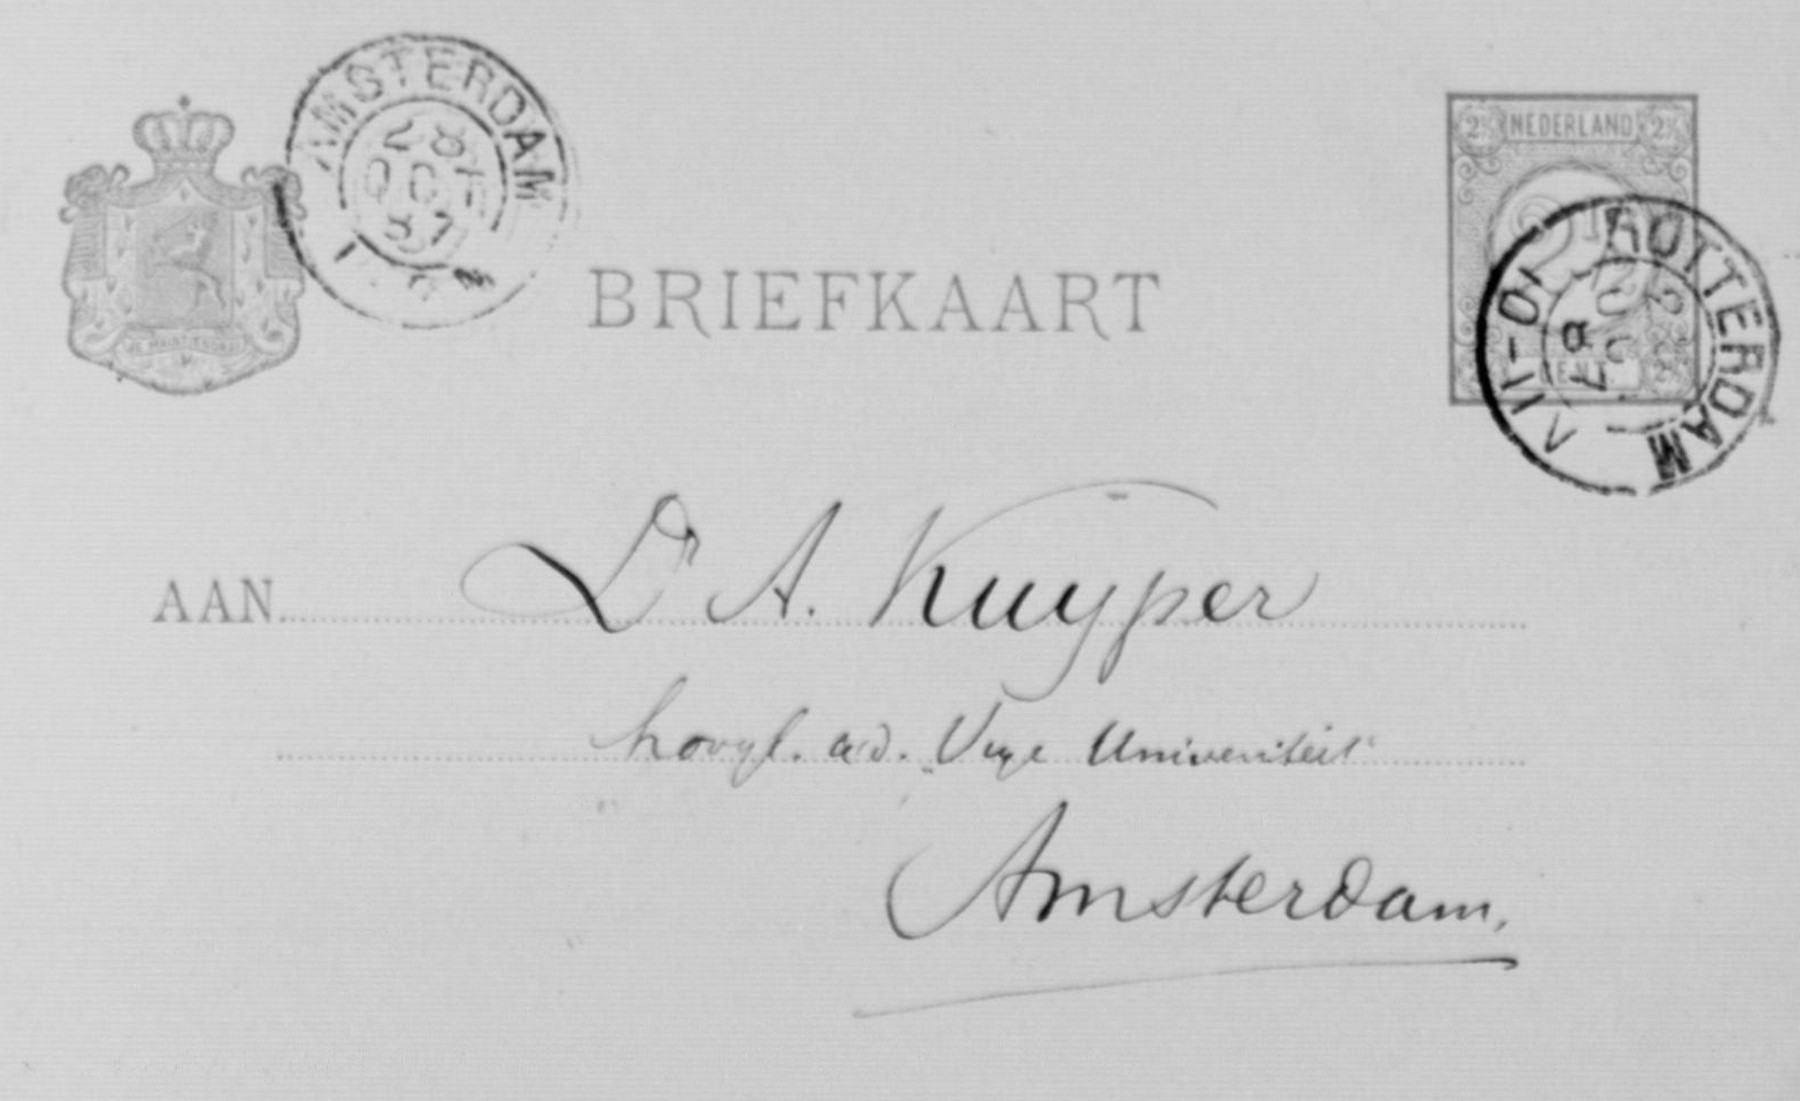 AMSTERDAM
28
OCT
87
NEDERLAND
2½ 2½
ROTTERDAM
OCT
87
10-11 V
BRIEFKAART
JE MAINTIENDRAI
AAN Dr A. Kuyper
hoogl. a/d. Vrije Universiteit
Amsterdam.